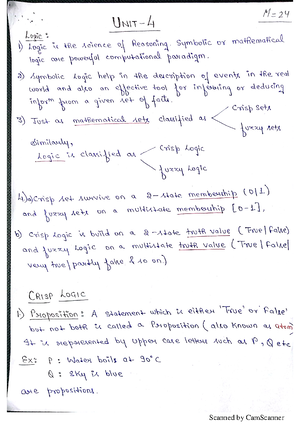 M=24
UNIT-4
Logic :
1) Logic is the science of Reasoning Symbolic or mathematical
logic are powerful computational paradigm.
2) Symbolic Logic help in the description of events in the real
world and also an effective tool for inferring or deducing
inform from a given set of facts.
3) Just as mathematical sets classified as
Crisp sets
fuzzy sets
Similarly,
Logic is classified as
Crisp Logic
fuzzy Logic
4) a) Crisp set survive on a 2-state membership (0/1)
and fuzzy sets on a multistate membership [0-1],
b) Crisp Logic is build on a 2-state truth value (True/False)
and fuzzy Logic on a multistate truth value (True/False/
very true/partly fake & so on)
CRISP LOGIC
1) Proposition : A Statement which is either 'True' or 'False'
but not both is called a Proposition (also known as atom
It is represented by upper case letters such as P, Q etc
Ex: P : Water boils at 90°C
Q : Sky is blue
are propositions.
Scanned by CamScanner